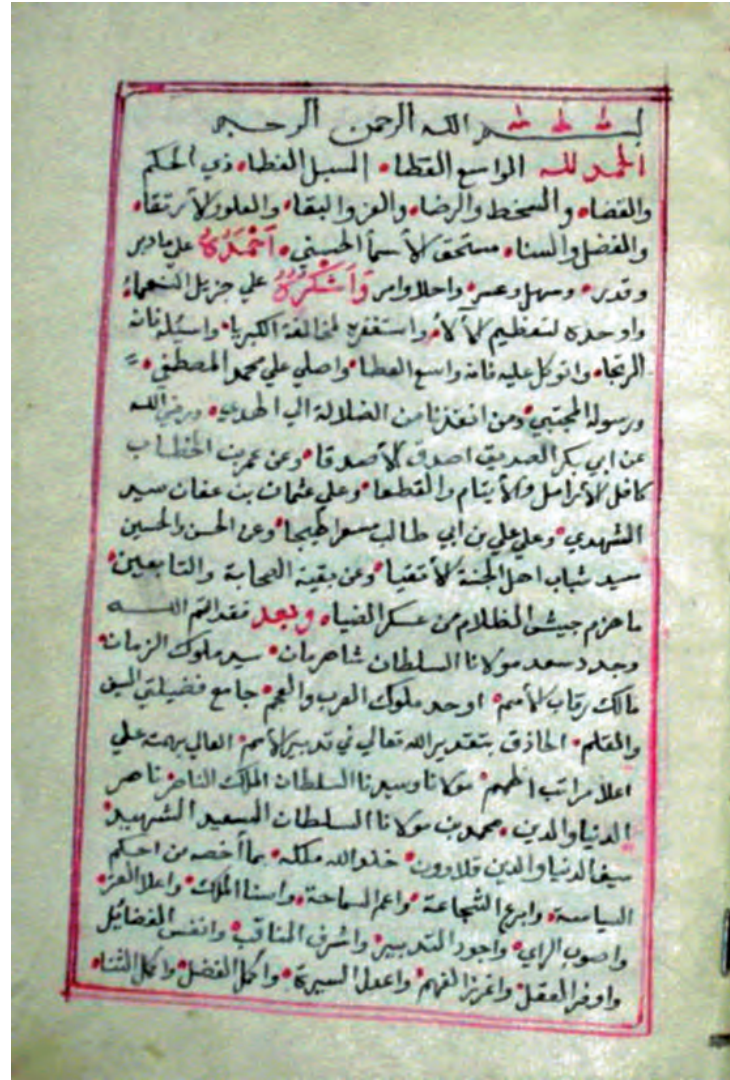 بسم الله الرحمن الرحيم
الحمد لله الواسع العطاء السبل الغطاء ذي الحكم
والقضاء والسخط والرضاء والعز والبقاء والعلو والارتقاء
والفضل والسناء مستحق الأسمآ الحسني أحمده علي مادبر
وقدر وسهل وعسر واحلا وامر وأشكره علي جزيل النعمآء
واوحده لتعظيم الألآء واستغفره لمخالفة الكبريا واسيله فانه
الرتجا واتوكل عليه فانه واسع العطا واصلي علي محمد المصطفي
ورسوله المجتبي ومن انقذنا من الضلالة الي الهدي ورضي الله
عن ابي بكر الصديق اصدق الأصدقا وعن عمر بن الخطاب
كافل الأرامل والأيتام والقطعا وعلي عثمان بن عفان سيد
الشهدي وعلي علي بن ابي طالب مسعر الهيجا وعن الحسن والحسين
سيد شباب اهل الجنة الأتقيا وعن بقية الصحابة والتابعين
ماهزم جيش الظلام من عسكر الضياء وبعد فقد اتم الله
وجدد سعد مولانا السلطان شاهرمان سيد ملوك الزمان
مالك رقاب الأمم اوحد ملوك العرب والعجم جامع فضيلتي السيف
والقلم الحاذق بتقدير الله تعالي في تدبير الأمم العالي بهمته علي
اعلا مراتب الهمم مولانا وسيدنا السلطان الملك الناصر ناصر
الدنيا والدين محمد بن مولانا السلطان السعيد الشهيد
سيف الدنيا والدين قلاوون خلد الله ملكه بما أخصه من احكم
السياسة وابرع الشجاعة واعم السماحة واسنا الملك واعلا العز
واصوب الراي واجود التدبير واشرف المناقب وانفس الفضائل
واوفر العقل واغزر الفهم واعدل السيرة واكمل الفضل واكمل الثناء